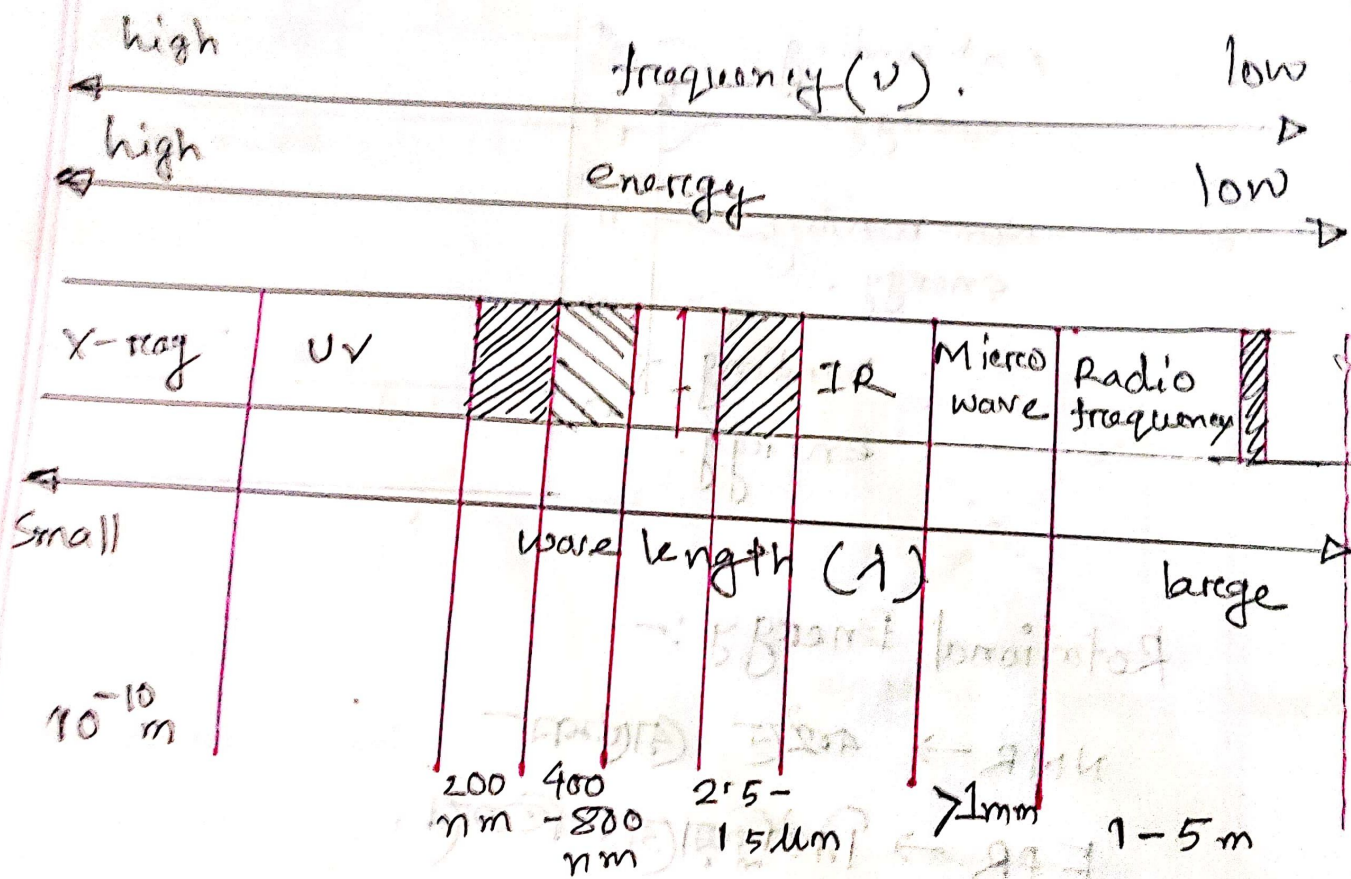 high
frequency (ν). low
high
energy low
X-ray UV IR Micro wave Radio frequency
Small wave length (λ) large
10⁻¹⁰ m
200 nm
400 - 800 nm
2.5 - 15 μm
>1mm
1-5 m